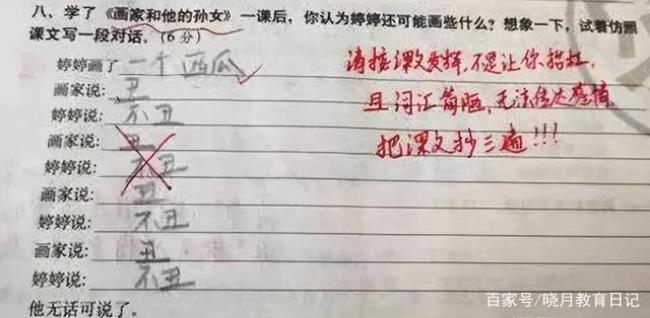 八、学了《画家和他的孙女》一课后,你认为婷婷还可能画些什么?想象一下,试着仿照
课文写一段对话。(6分)
婷婷画了一个西瓜
画家说:丑
婷婷说:不丑
画家说:丑
婷婷说:不丑
画家说:丑
婷婷说:不丑
画家说:丑
婷婷说:不丑
他无话可说了。
请按课文发挥,不是让你抬杠,
且词汇简陋,无法传达感情
把课文抄三遍!!!
百家号/晓月教育日记